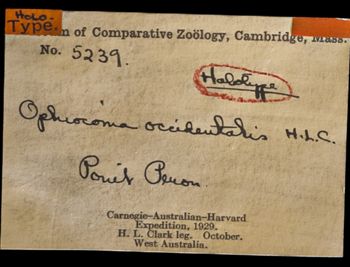 HOLO-
TYPE.
m of Comparative Zoölogy, Cambridge, Mass.
No. 5239.
Holotype
Ophiocoma occidentalis H.L.C.
Point Peron.
Carnegie-Australian-Harvard
Expedition, 1929.
H. L. Clark leg. October.
West Australia.